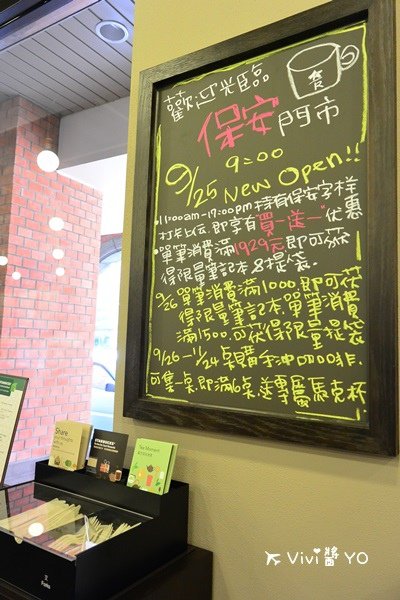 歡迎光臨
保安門市
9/25 9:00
New Open!!
•11:00am-17:00pm 持有保安字樣
打卡上傳 即享有"買一送一"優惠
•單筆消費滿1929元即可獲
得限量筆記本&提袋.
9/26 單筆消費滿1000.即可獲
得限量筆記本.單筆消費
滿1500.可獲得限量提袋
9/26-11/24 桌購手沖
可集一桌.即滿6桌.送專屬馬克杯
Share
STARBUCKS
Vivi醬YO